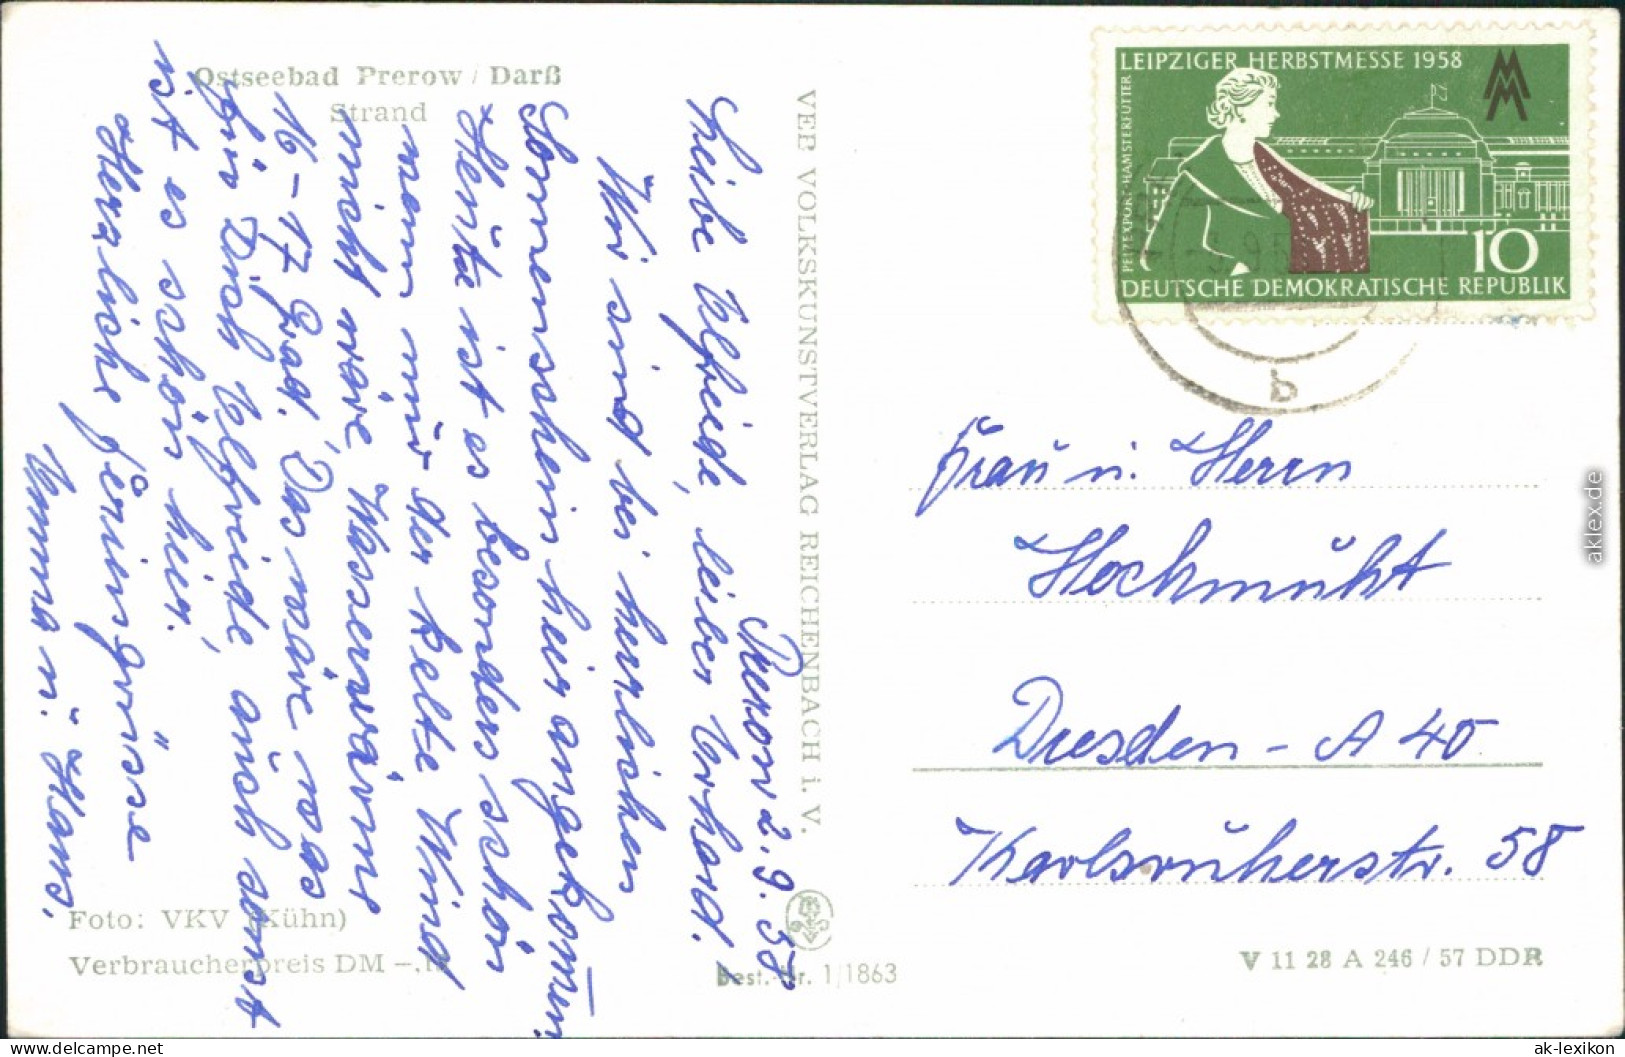 Ostseebad Prerow / Darß
Strand
Prerow 2.9.58
Leibe Elfriede, leiber Erhard!
Wir sind bei herrlichen
Sonnenschein hier angekommen
Heute ist es besonders schön
wenn nur der kelte Wind
nicht wäre, Wasserwärme
16-17 Grad. Das wäre was
für Dich Elfriede, auch sonst
ist es schön hier.
Herzliche feriengrüsse
Emma u. Hans.
Foto: VKV (Kühn)
Verbraucherpreis DM –,
Best.-Nr. 1/1863
VEB VOLKSKUNSTVERLAG REICHENBACH i. V.
LEIPZIGER HERBSTMESSE 1958
MM
PELZEXPORT·HAMSTERFUTTER
10
DEUTSCHE DEMOKRATISCHE REPUBLIK
b
Frau u. Herrn
Hochmuht
Dresden - A 40
Karlsruherstr. 58
V 11 28 A 246 / 57 DDR
aklex.de
www.delcampe.net
ak-lexikon